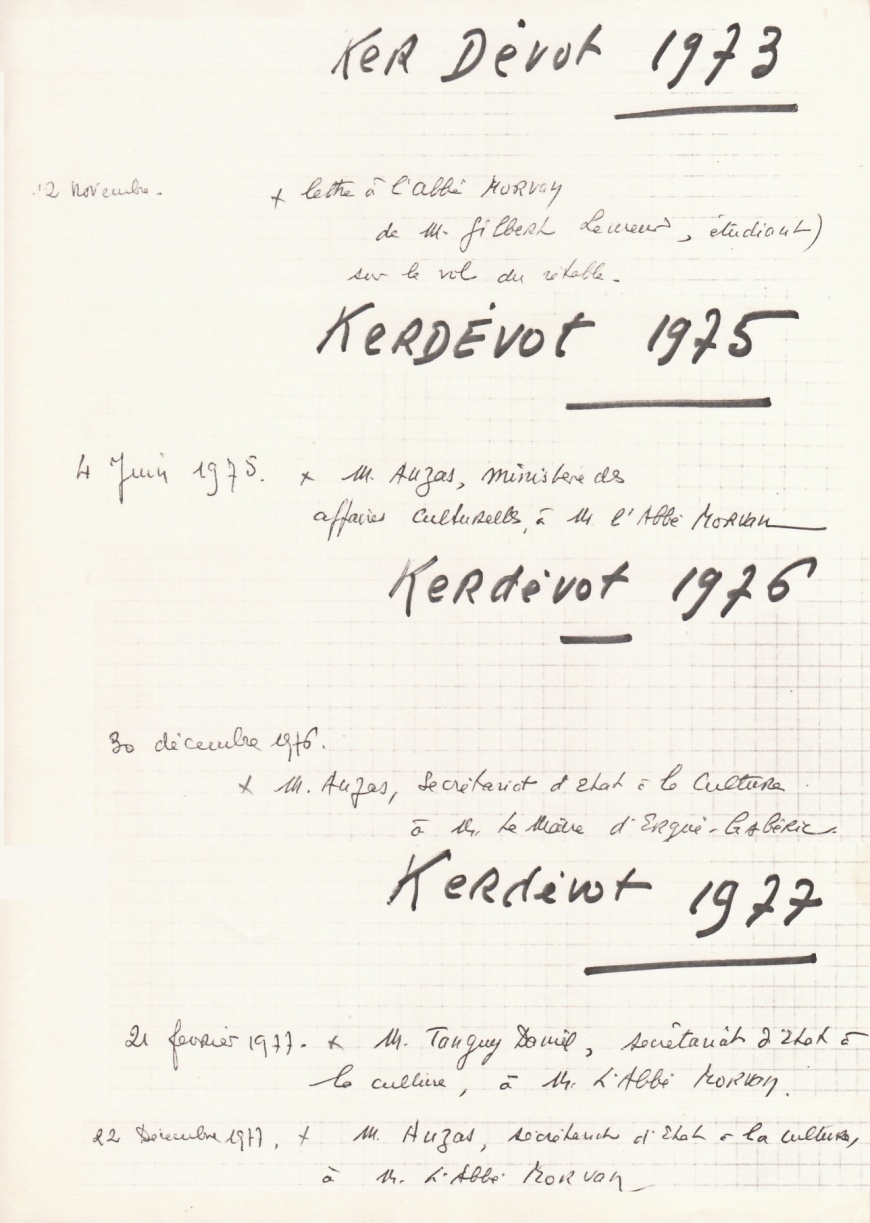 KER Dévot 1973
12 Novembre. + lettre à l'abbé MORVAN
de M. Gilbert , étudiant)
sur le vol du rétable.
KERDÉVOT 1975
4 Juin 1975. + M. Auzas, ministère des
affaires culturelles, à M. l'Abbé MORVAN
Kerdévot 1976
30 décembre 1976.
+ M. Auzas, Secrétariat d'Etat à la Culture
à M. Le Maire d'Ergué-Gabéric.
Kerdévot 1977
21 février 1977. + M. Tanguy Daniel, secrétariat d'Etat à
la culture, à M. L'Abbé MORVAN.
22 Décembre 1977, + M. Auzas, secrétariat d'Etat à la culture,
à M. L'Abbé MORVAN